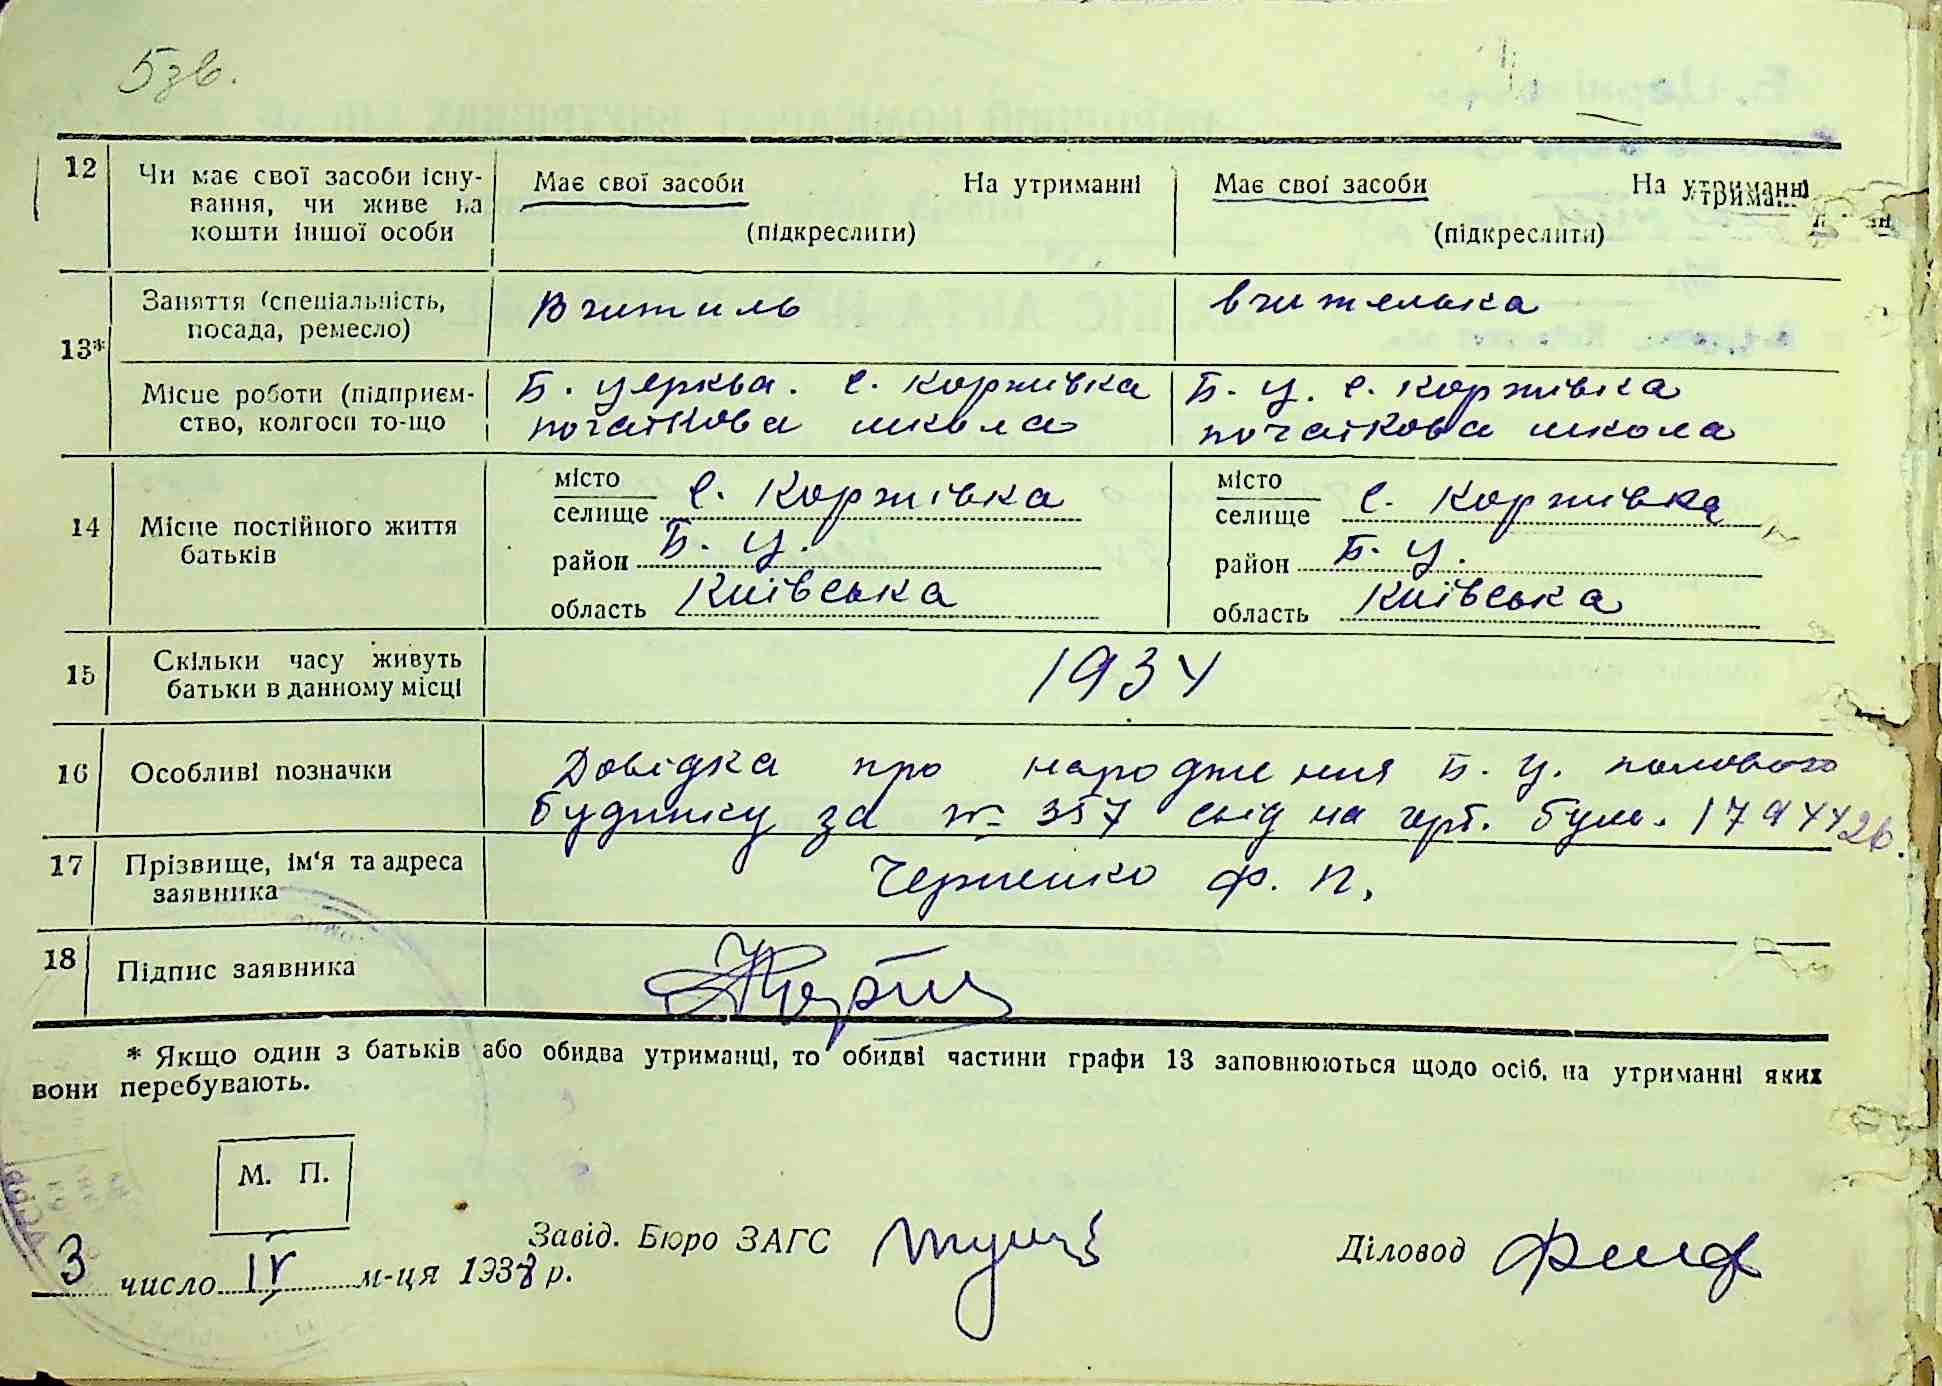 5зв.
12 Чи має свої засоби існу-
вання, чи живе на
кошти іншої особи
Має свої засоби На утриманні
(підкреслити)
Має свої засоби На утриманні
(підкреслити)
13* Заняття (спеціальність,
посада, ремесло)
Вчитиль
вчителька
Місце роботи (підприєм-
ство, колгосп то-що
Б. церква. с. Коржівка
початкова школа
Б. Ц. с. Коржівка
початкова школа
14 Місце постійного життя
батьків
місто
селище с. Коржівка
район Б. Ц.
область Київська
місто
селище с. Коржівка
район Б. Ц.
область Київська
15 Скільки часу живуть
батьки в данному місці
1934
16 Особливі позначки
Довідка про народження Б. Ц. полового
будинку за № 357 на герб. бум. 1794426.
17 Прізвище, ім'я та адреса
заявника
Ф. П.
18 Підпис заявника
* Якщо один з батьків або обидва утриманці, то обидві частини графи 13 заповнюються щодо осіб, на утриманні яких
вони перебувають.
М. П.
3 число IV м-ця 1938 р.
Завід. Бюро ЗАГС
Діловод